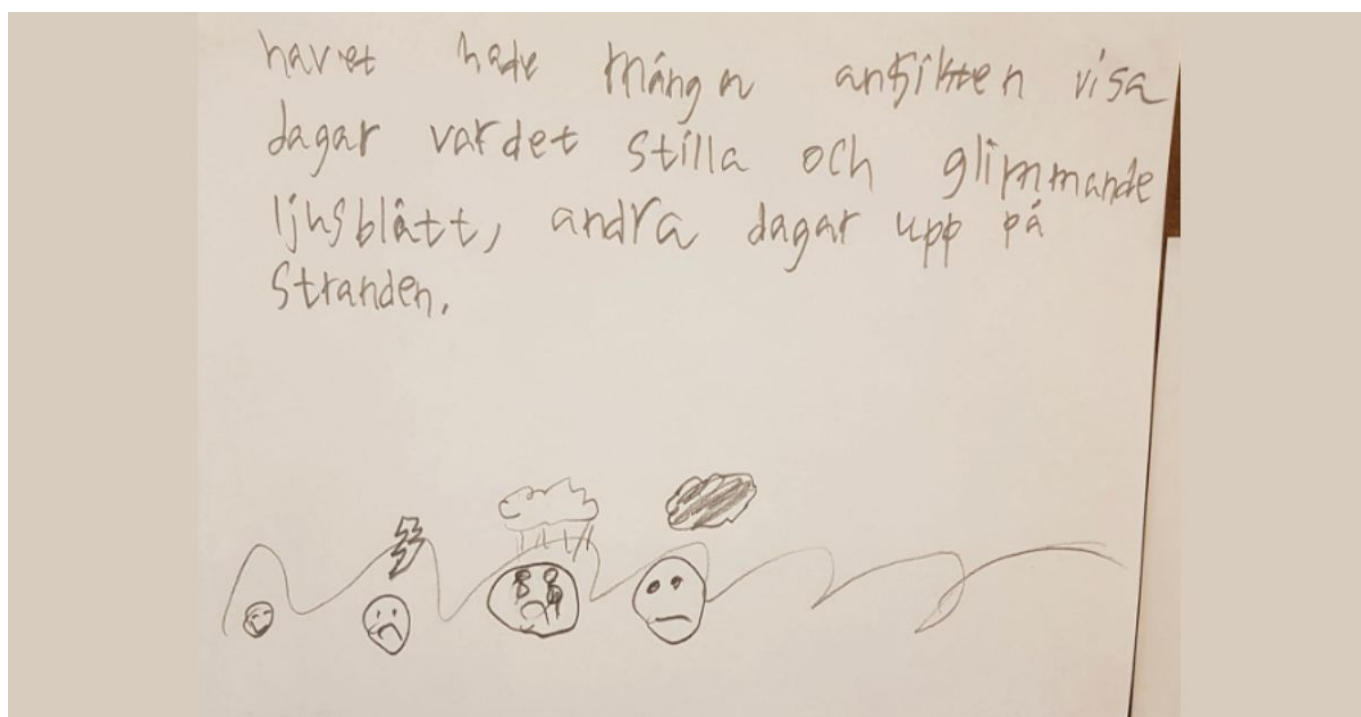 havet hade många ansikten visa
dagar var det stilla och glimmande
ljusblått, andra dagar upp på
stranden.